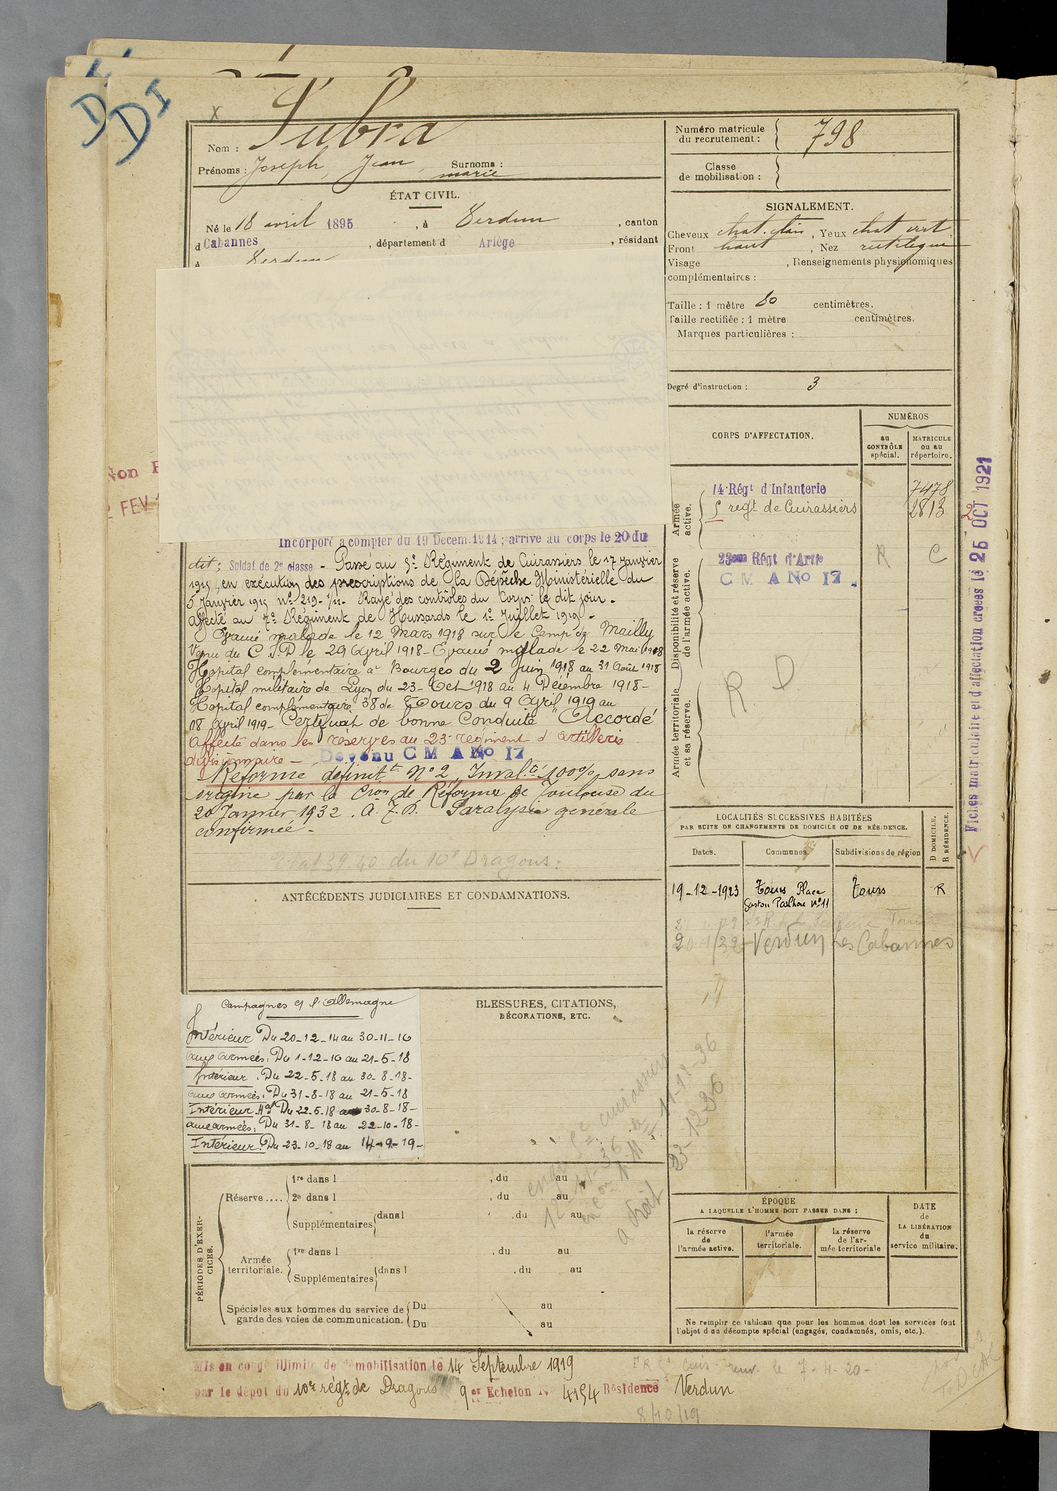 DI
DI
x
Nom : Subra
Prénoms : Joseph, Jean, marie Surnoms :
Numéro matricule
du recrutement : 798
Classe
de mobilisation :
ÉTAT CIVIL.
Né le 18 avril 1895, à Verdun, canton
d Cabannes, département d Ariège, résidant
à Verdun
SIGNALEMENT.
Cheveux chat. clair, Yeux chat vert
Front haut, Nez rectiligne
Visage , Renseignements physionomiques
complémentaires :
Taille : 1 mètre 80 centimètres.
Taille rectifiée : 1 mètre centimètres.
Marques particulières :
Degré d'instruction : 3
CORPS D'AFFECTATION.
NUMÉROS
au
CONTRÔLE
spécial.
MATRICULE
ou au
répertoire.
Armée
active.
14 Régt d'Infanterie 7478
5e regt de Cuirassiers 2813
Disponibilité et réserve
de l'armée active.
23eme Régt d'Artie R C
C M A No 17.
Armée territoriale
et sa réserve.
R D
Non
2 FEV
Fiches matriculaire et d'affectation creees le 25 OCT 1921
Incorporé à compter du 19 Decem. 1914; arrivé au corps le 20 du
dit; Soldat de 2e classe - Passé au 5e Régiment de Cuirassiers le 17 Janvier
1915, en exécution des prescriptions de la Dépêche Ministérielle du
5 Janvier 1915 no 219-1/11. Rayé des contrôles du Corps le dit jour.
Affecté au 7e Régiment de Hussards le 1e Juillet 1919.
Evacué malade le 12 Mars 1918 sur le Camp de Mailly
Venu du C I D le 29 Avril 1918 - Evacué malade le 22 Mai 1918
Hopital complémentaire à Bourges du 2 Juin 1918 au 31 Août 1918
Hopital militaire de Lyon du 23 Oct 1918 au 4 Décembre 1918 -
Hopital complémentaire 38 de Tours du 9 Avril 1919 au
18 Avril 1919 - Certificat de bonne Conduite "Accordé"
Affecté dans les réserves au 23e régiment d'artillerie
divisionnaire - Devenu C M A No 17
Réformé définitt No 2 Inval.té 100% sans
origine par la Cion de Réforme de Toulouse du
20 Janvier 1932. A.J.D. Paralysie générale
confirmée -
Etat 39.40 du 10e Dragons.
ANTÉCÉDENTS JUDICIAIRES ET CONDAMNATIONS.
LOCALITÉS SUCCESSIVES HABITÉES
PAR SUITE DE CHANGEMENTS DE DOMICILE OU DE RÉSIDENCE.
Dates. Communes. Subdivisions de région
D DOMICILE.
R RÉSIDENCE.
19-12-1923 Tours Place Tours R
Gaston Pailhou No 11
Verdun Les Cabannes
Campagnes c/ l'Allemagne
Intérieur Du 20-12-14 au 30-11-16
aux armées: Du 1-12-16 au 21-5-18
Intérieur: Du 22-5-18 au 30-8-18-
aux armées: Du 31-8-18 au 21-5-18
Intérieur Du 22-5-18 au 30-8-18-
aux armées: Du 31-8-18 au 22-10-18-
Intérieur: Du 23-10-18 au 14-9-19-
BLESSURES, CITATIONS,
DÉCORATIONS, ETC.
5e cuirassiers
11-11-36
23-12-36
a droit
PÉRIODES D'EXERCICES.
Réserve ....
1re dans l , du au
2e dans l , du au
Supplémentaires dans l , du au
Armée
territoriale.
1re dans l , du au
Supplémentaires dans l , du au
Spéciales aux hommes du service de
garde des voies de communication.
Du au
Du au
ÉPOQUE
A LAQUELLE L'HOMME DOIT PASSER DANS :
la réserve
de
l'armée active.
l'armée
territoriale.
la réserve
de l'ar-
mée territoriale
DATE
de
LA LIBÉRATION
du
service militaire.
Ne remplir ce tableau que pour les hommes dont les services font
l'objet d'un décompte spécial (engagés, condamnés, omis, etc.).
Mis en congé illimité de démobilisation le 14 Septembre 1919
par le dépôt du 10e régt de Dragons 9e Echelon No 4154 Résidence Verdun
Cuis renv. le 7-4-20-
8/10/19